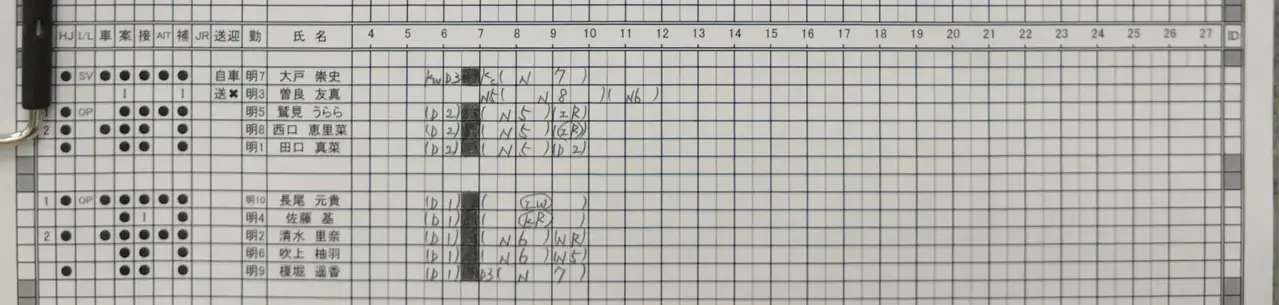 HJ I/L 車 案 接 AIT 補 JR 送迎 勤 氏 名 4 5 6 7 8 9 10 11 12 13 14 15 16 17 18 19 20 21 22 23 24 25 26 27 ID
● SV ● ● ● ● ● 自車 明7 大戸 崇史 D3 ( N 7 )
I I 送✖ 明3 曽良 友真 N5 ( N 8 ) ( N6 )
● OP ● ● ● ● 明5 鷲見 うらら (D 2) ( N 5 ) (IR)
2 ● ● ● ● ● 明8 西口 恵里菜 (D 2) ( N 5 ) (IR)
● ● ● ● 明1 田口 真菜 (D 2) ( N 5 ) (D 2)
1 ● OP ● ● ● ● ● 明10 長尾 元貴 (D 1) ( IW )
● I ● 明4 佐藤 基 (D 1) ( KR )
2 ● ● ● ● ● ● 明2 清水 里奈 (D 1) ( N 6 ) (WR)
● ● ● 明6 吹上 柚羽 (D 1) ( N 6 ) (W5)
● ● ● ● 明9 榎堀 遥香 (D 1) D3 ( N 7 )